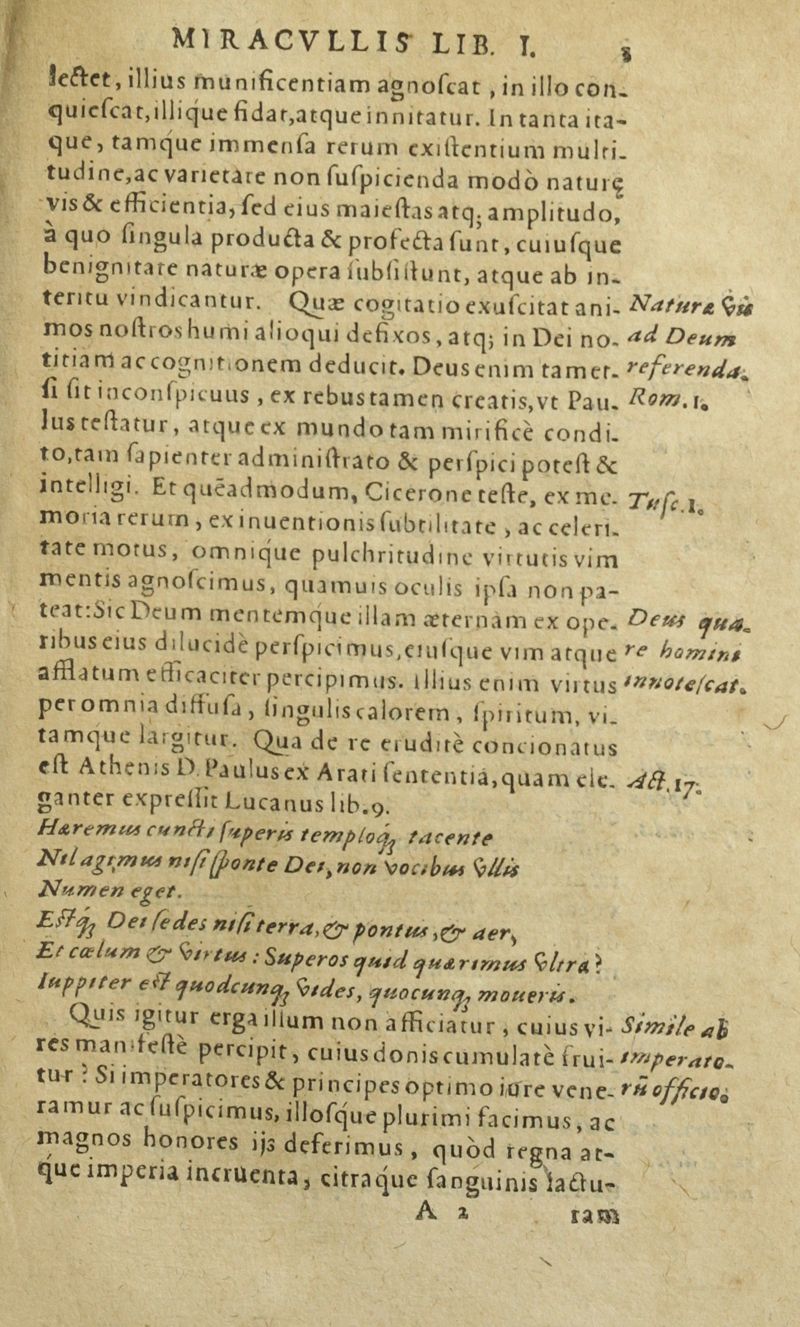 MIRACVLLIS LIB. I. 3
lectet, illius munificentiam agnoscat, in illo con-
quiescat, illique fidat, atque innitatur. In tanta ita-
que, tamque immensa rerum existentium multi-
tudine, ac varietate non suspicienda modò naturę
vis & efficientia, sed eius maiestas atq; amplitudo,
à quo singula producta & profecta sunt, cuiusque
benignitate naturæ opera subsistunt, atque ab in-
teritu vindicantur. Quæ cogitatio exuscitat ani-
Naturæ vis
mos nostros humi alioqui defixos, atq; in Dei no-
ad Deum
titiam ac cognitionem deducit. Deus enim tamet-
referenda.
si sit inconspicuus, ex rebus tamen creatis, vt Pau-
Rom. 1.
lus testatur, atque ex mundo tam mirificè condi-
to, tam sapienter administrato & perspici potest &
intelligi. Et quēadmodum, Cicerone teste, ex me-
Tusc. 1.
moria rerum, ex inuentionis subtilitate, ac celeri-
tate motus, omnique pulchritudine virtutis vim
mentis agnoscimus, quamuis oculis ipsa non pa-
teat: Sic Deum mentemque illam æternam ex ope-
Deus qua-
ribus eius dilucidè perspicimus, eiusque vim atque
re homini
afflatum efficaciter percipimus. Illius enim virtus
innotescat.
per omnia diffusa, singulis calorem, spiritum, vi-
tamque largitur. Qua de re eruditè concionatus
est Athenis D. Paulus ex Arati sententia, quam ele-
Act. 17.
ganter expressit Lucanus lib. 9.
Hæremus cuncti superis temploq; tacente
Nil agimus nisi sponte Dei, non vocibus vllis
Numen eget.
Estq; Dei sedes nisi terra, & pontus, & aer,
Et cœlum & virtus: Superos quid quærimus vltra?
Iuppiter est quodcunq; vides, quocunq; moueris.
Quis igitur erga illum non afficiatur, cuius vi-
Simile ab
res manifestè percipit, cuius donis cumulatè frui-
imperato-
tur? Si imperatores & principes optimo iure vene-
rū officio.
ramur ac suspicimus, illosque plurimi facimus, ac
magnos honores ijs deferimus, quòd regna at-
que imperia incruenta, citraque sanguinis iactu-
A 2 ram